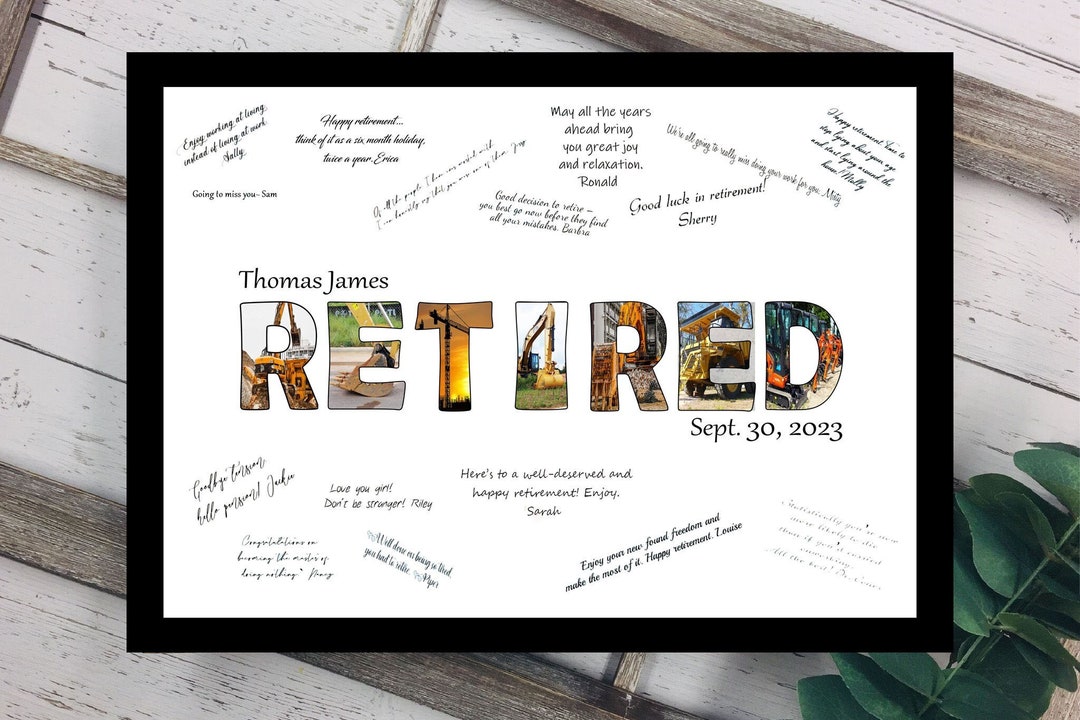 Enjoy working at living
instead of living at work
Sally
Happy retirement...
think of it as a six month holiday,
twice a year. Erica
May all the years
ahead bring
you great joy
and relaxation.
Ronald
We're all going to really miss doing your work for you. Misty
Happy retirement. Time to
stop lying about your age
and start lying around the
house! Molly
Going to miss you~ Sam
Of all the people I have ever worked with
I can honestly say that you were one of them.
Good decision to retire –
you best go now before they find
all your mistakes. Barbra
Good luck in retirement!
Sherry
Thomas James
RETIRED
Sept. 30, 2023
Goodbye tension,
hello pension! Jackie
Love you girl!
Don't be stranger! Riley
Here's to a well-deserved and
happy retirement! Enjoy.
Sarah
Congratulations on
becoming the master of
doing nothing~ Nancy
Well done on being so tired,
you had to retire. Piper
Enjoy your new found freedom and
make the most of it. Happy retirement. Louise
Statistically you're now
more likely to die
than if you'd carried
on working.
All the best!